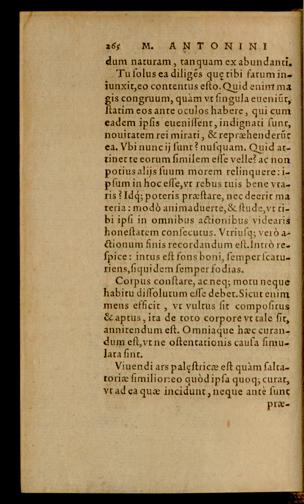 265 M. ANTONINI
dum naturam, tanquam ex abundanti.
Tu solus ea diligẽs quę tibi fatum in-
iunxit, eo contentus esto. Quid enim ma
gis congruum, quàm vt singula eueniũt,
statim eos ante oculos habere, qui cum
eadem ipsis euenissent, indignati sunt,
nouitatem rei mirati, & repræhenderũt
ea. Vbi nunc ij sunt? nusquam. Quid at-
tinet te eorum similem esse velle? ac non
potius alijs suum morem relinquere: i-
psum in hoc esse, vt rebus tuis bene vta-
ris? Idq; poteris præstare, nec deerit ma
teria: modò animaduerte, & stude, vt ti-
bi ipsi in omnibus actionibus videaris
honestatem consecutus. Vtriusq; verò a-
ctionum finis recordandum est. Intrò re-
spice: intus est fons boni, semper scatu-
riens, siquidem semper fodias.
Corpus constare, ac neq; motu neque
habitu dissolutum esse debet. Sicut enim
mens efficit, vt vultus sit compositus
& aptus, ita de toto corpore vt tale sit,
annitendum est. Omniaque hæc curan-
dum est, vt ne ostentationis causa simu-
lata sint.
Viuendi ars palęstricæ est quàm salta-
toriæ similior: eo quòd ipsa quoq; curat,
vt ad ea quæ incidunt, neque antè sunt
præ-